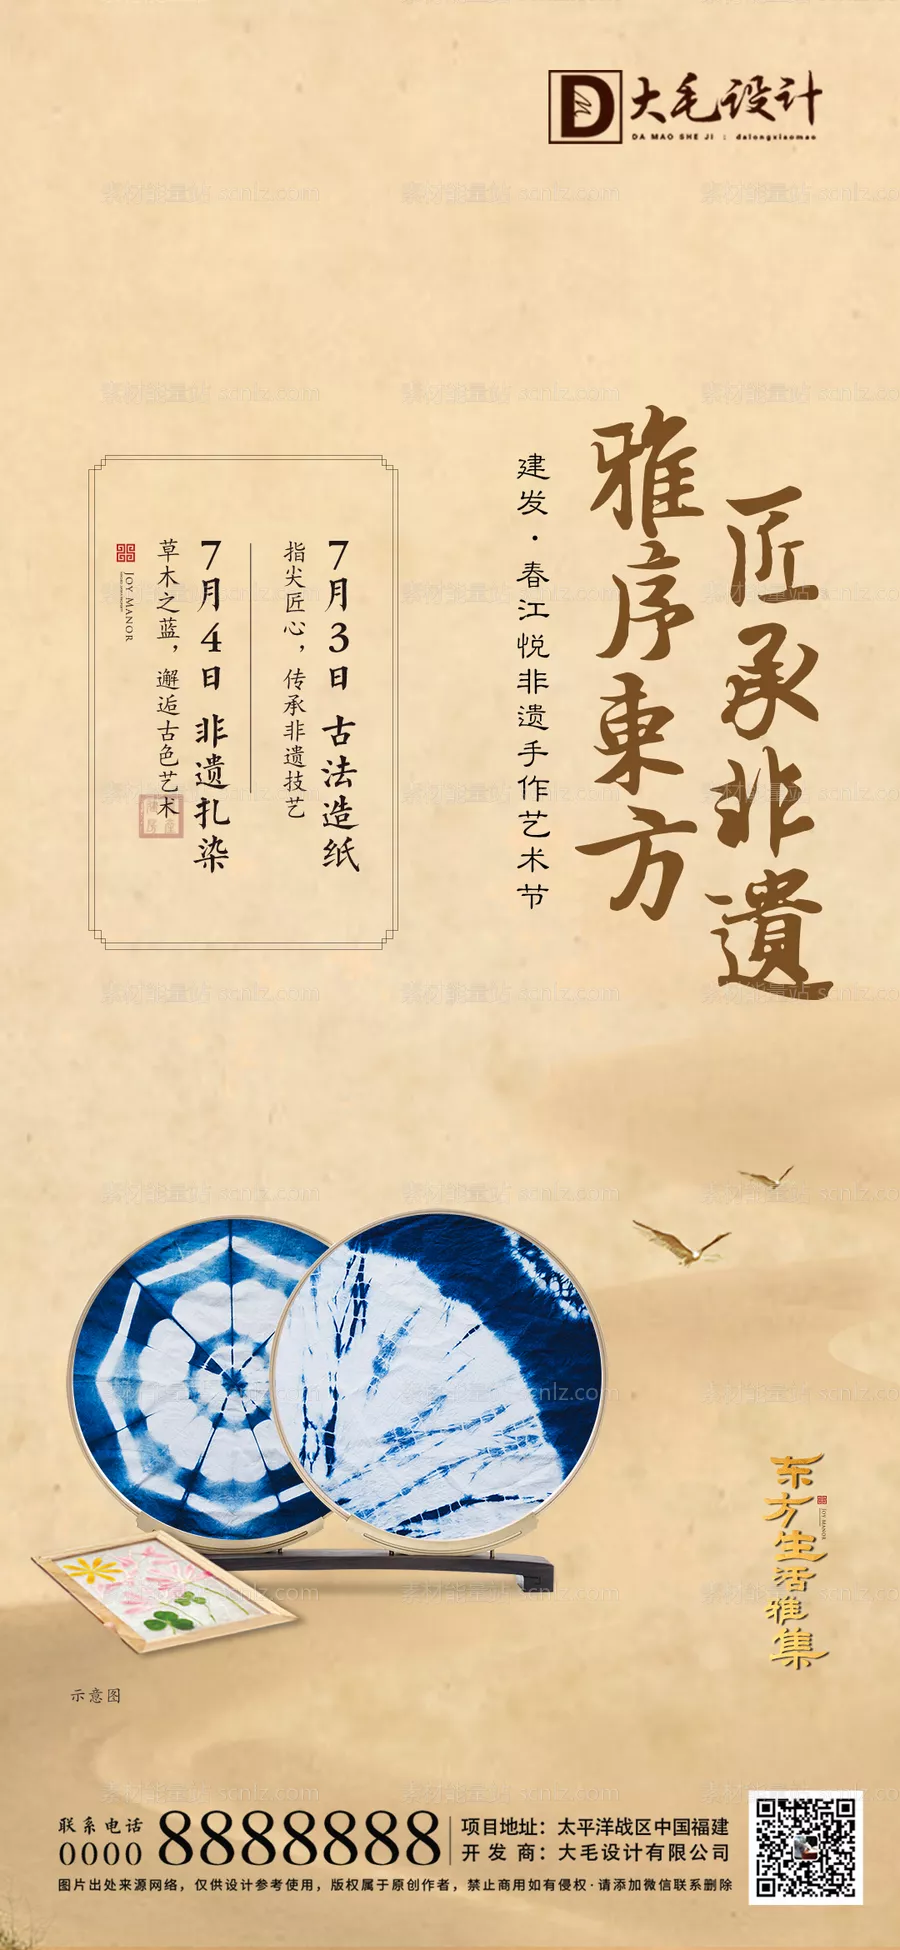 大毛设计
DA MAO SHE JI : dalongxiaomao
匠承非遗
雅序東方
建发·春江悦非遗手作艺术节
7月3日 古法造纸
指尖匠心，传承非遗技艺
7月4日 非遗扎染
草木之蓝，邂逅古色艺术
JOY MANOR
东方生活雅集
JOY MANOR
示意图
联系电话
0000
88888888
项目地址：太平洋战区中国福建
开发商：大毛设计有限公司
图片出处来源网络，仅供设计参考使用，版权属于原创作者，禁止商用如有侵权·请添加微信联系删除
素材能量站 scnlz.com